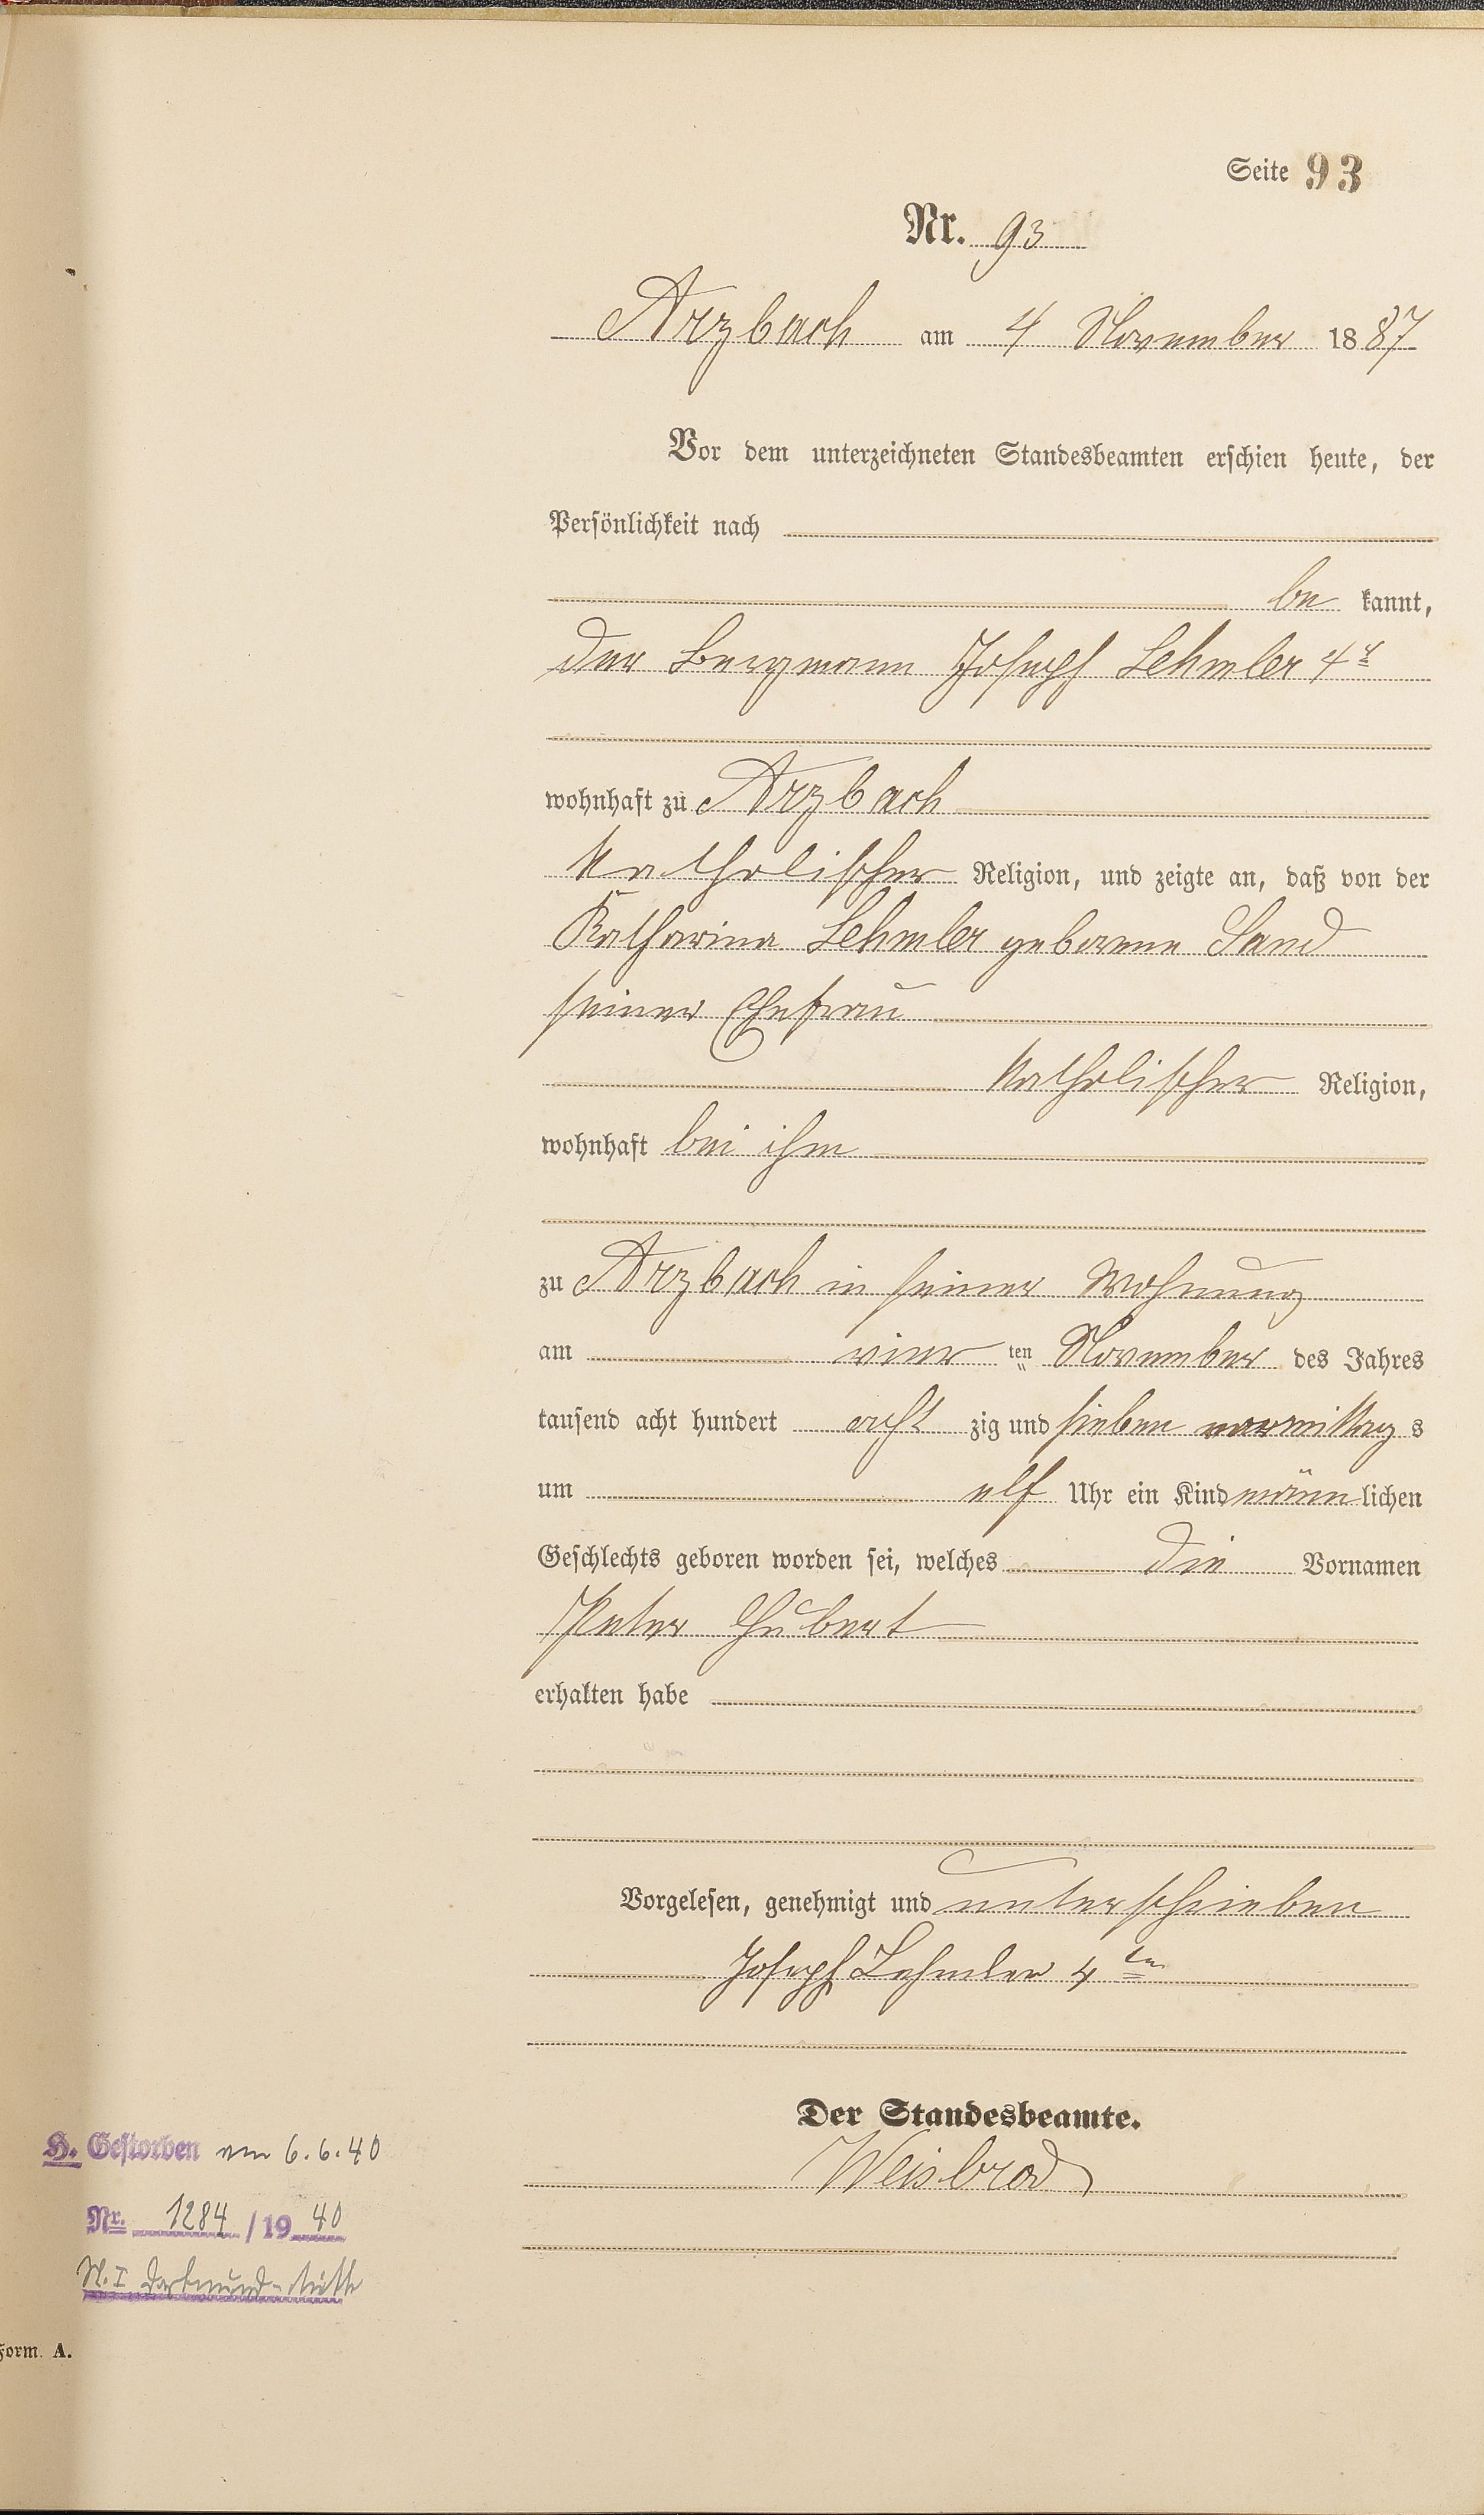 Seite 93
Nr. 93
Arzbach am 4 November 1887
Vor dem unterzeichneten Standesbeamten erschien heute, der
Persönlichkeit nach
be kannt,
der Bergmann Joseph Lehmler 4r
wohnhaft zu Arzbach
katholischer Religion, und zeigte an, daß von der
Katharina Lehmler geborene Sand
seiner Ehefrau
katholischer Religion,
wohnhaft bei ihm
zu Arzbach in seiner Wohnung
am vier ten November des Jahres
tausend acht hundert acht zig und sieben vormittag s
um elf Uhr ein Kind männlichen
Geschlechts geboren worden sei, welches die Vornamen
Peter Hubert
erhalten habe
Vorgelesen, genehmigt und unterschrieben
Joseph Lehmler 4ter
Der Standesbeamte.
Weisbrod
H. Gestorben am 6.6.40
Nr. 1284/1940
St. I Dortmund-
Form. A.